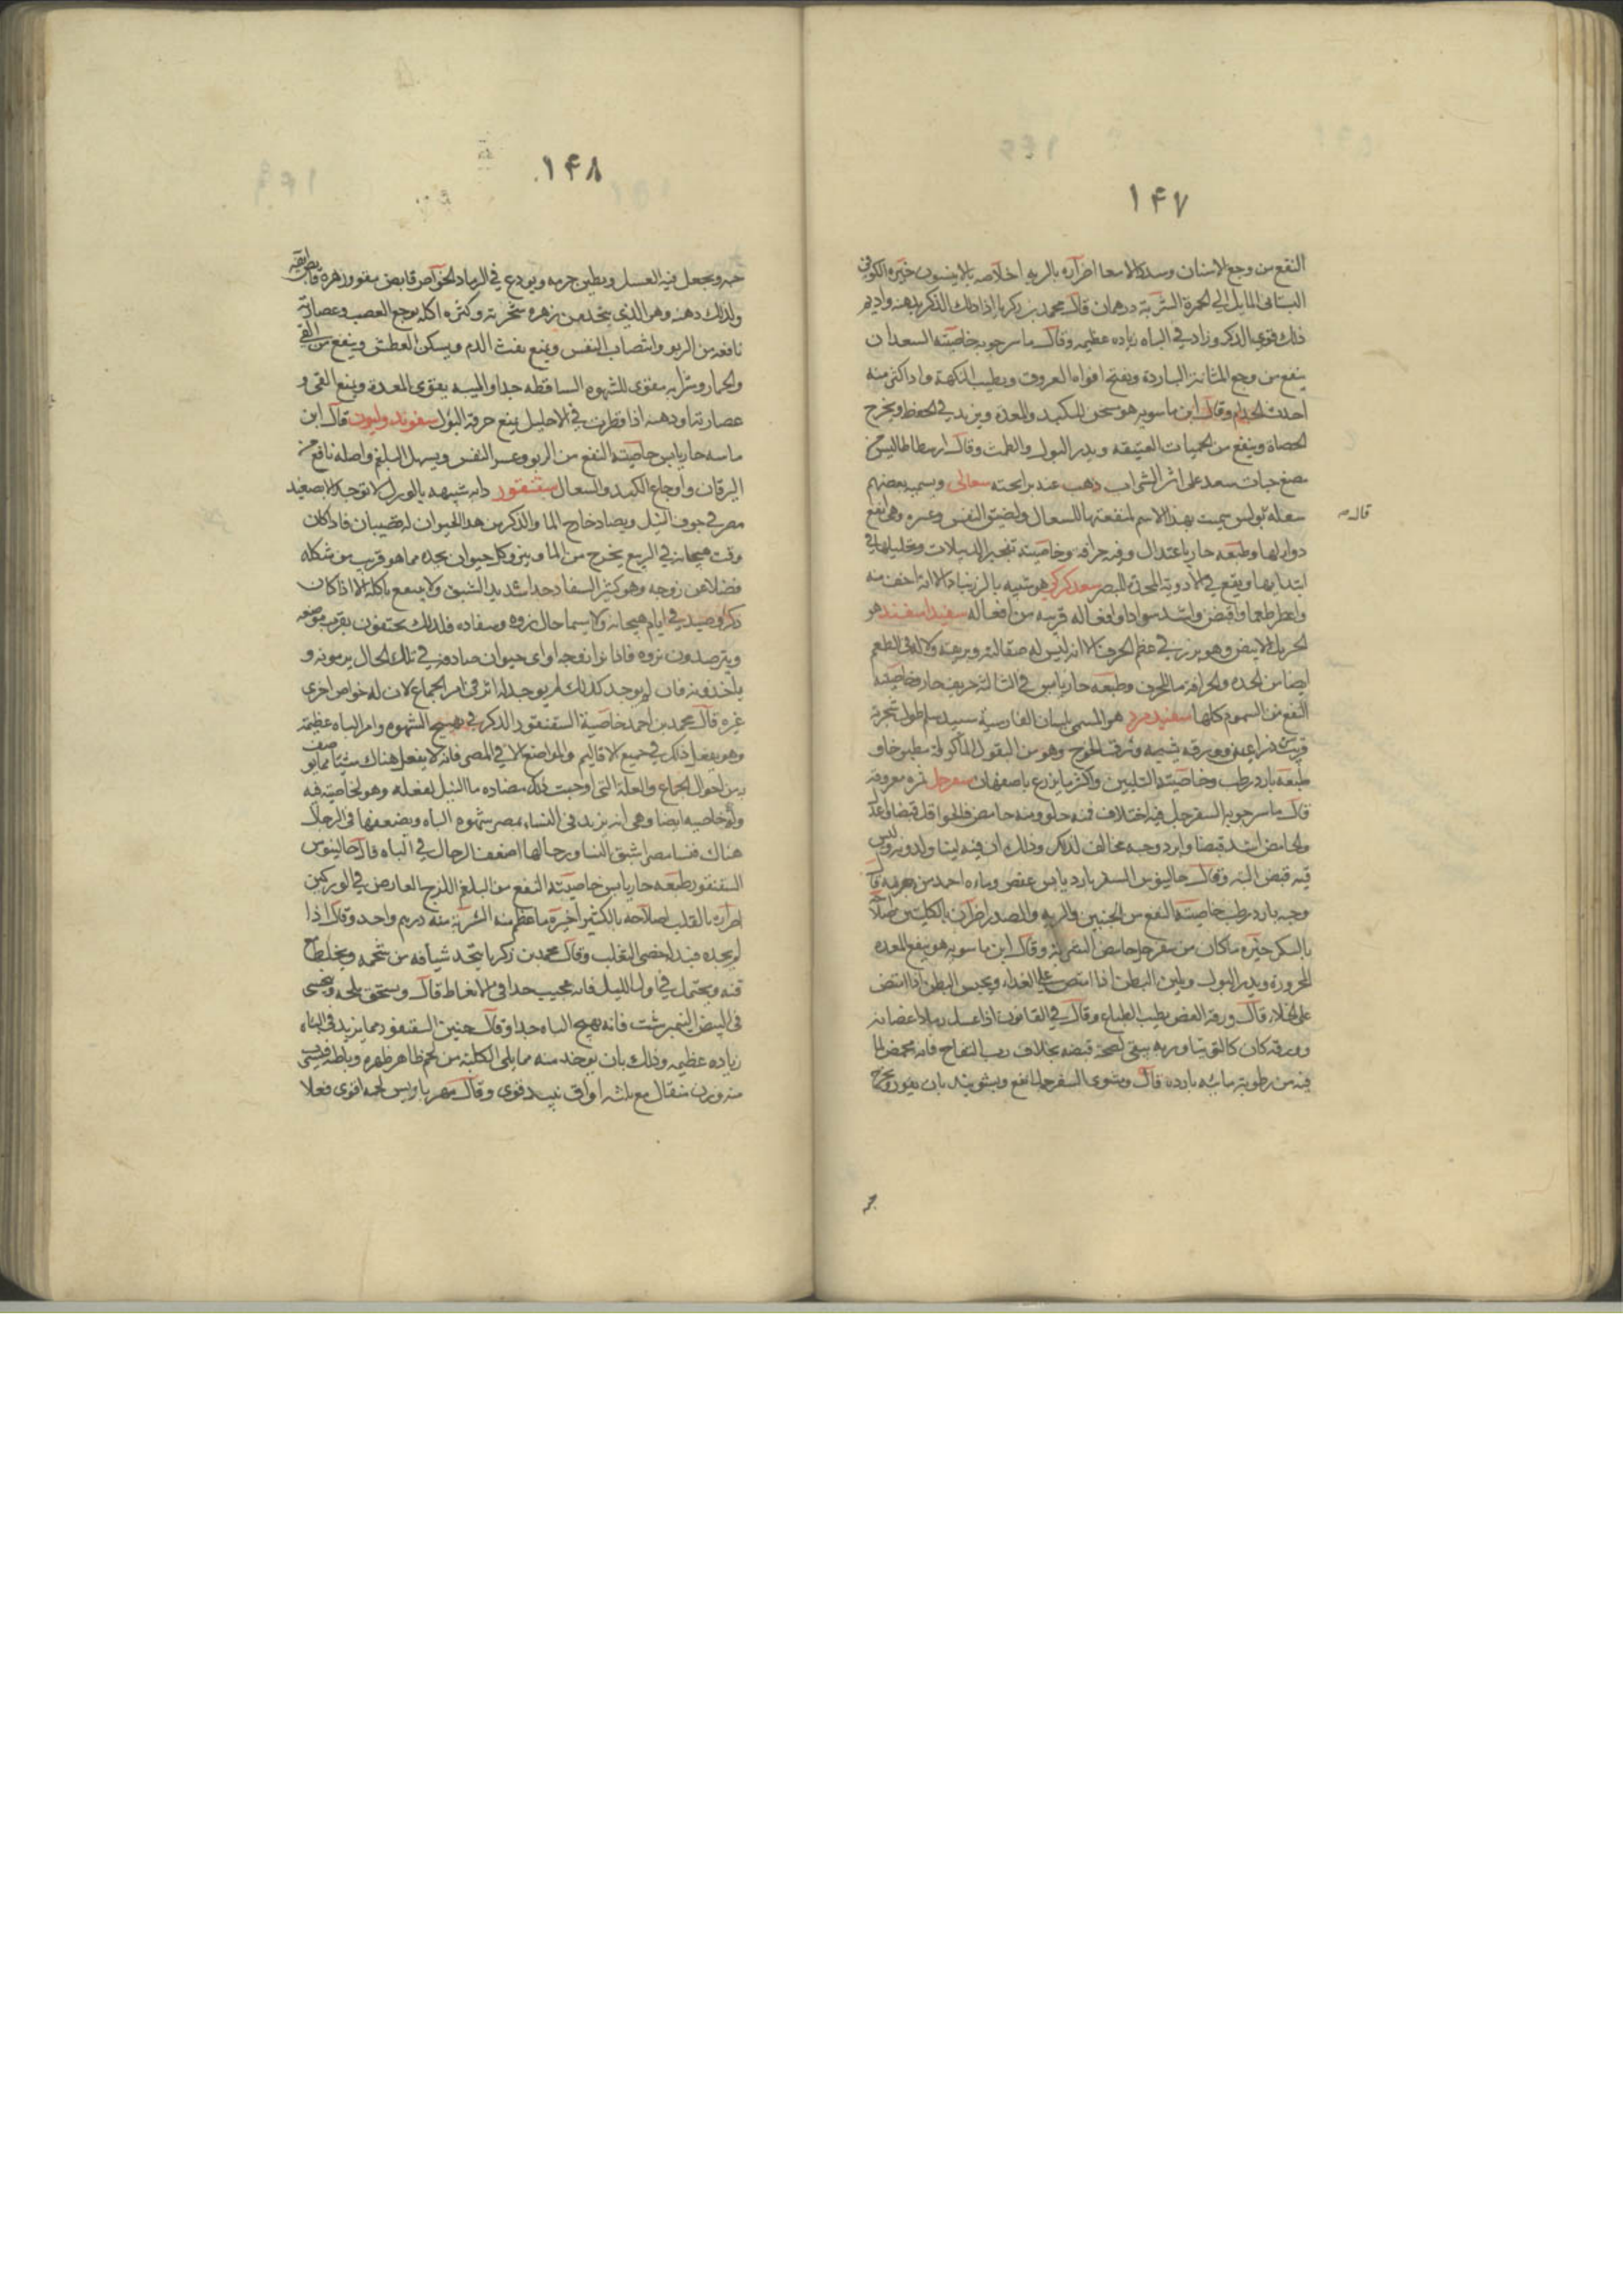 ١٤٧
النفع من وجع الاسنان وسدد الامعا اضراره بالريه اصلاحه بالانيسون خيره الكوفى
البستانى المايل الى الحمرة الشربة درهمان قال محمد بن زكريا اذا دلك الذكر بدهنه واديم
ذلك قوى الذكر وزاد في الباه زياده عظيمه وقال ماسرجويه خاصيته السعد ان
ينفع من وجع المثانة الباردة ويفتح افواه العروق ويطيب النكهة واذا اكثر منه
احدث الجذام وقال ابن ماسويه هو مسخن للكبد والمعدة ويزيد في الحفظ ويخرج
الحصاة وينفع من الحميات العتيقه ويدر البول والطمث وقال ارسطاطاليس من
مضغ حبات سعد على اثر الشراب ذهب عنه رايحته سعالى ويسميه بعضهم
قال
سعله بولس سميت بهذا الاسم لمنفعتها للسعال ولضيق النفس وعسره وهى انفع
دوا لها وطبعه حار باعتدال وفيه حرافه وخاصيته تفجير الدبيلات وتحليلها في
ابتدايها ويقع في الأدوية المحدة للبصر سعد كركى هو شبيه بالزرنباد الا انه اخف منه
واعطر طعما واقبض واشد سوادا وافعاله قريبه من افعاله سفيد اسفند هو
الخردل الابيض وهو بزر في عظم الحرف الا انه ليس له صقالته وبريقه ولا له فى الطعم
ايضا من الحده والحرافه ما للحرف وطبعه حار يابس في الثالثة حريف حار وخاصيته
النفع من السموم كلها سفيد مرد هو المسمى بلسان الفارسية سبيد
قريب ذراعين وورقه شبيه بورق الخوخ وهو من البقول الماكولة مطبوخا و
طبعه بارد رطب وخاصيته التليين واكثر ما يزرع باصفهان سفرجل ثمره معروفه
قال ماسرجويه السفرجل فيه اختلاف فمنه حلو ومنه حامض فالحلو اقل قبضا واعدل
والحامض اشد قبضا وابرد وجه مخالف لذلك وذلك ان فيه لينا ولدونه وليس
فيه قبض البته وقال جالينوس السفرجل بارد يابس عفص
وحبه بارد رطب خاصيته النفع من الجنبين والريه والصدر اضراره بالكليتين اصلاحه
بالسكر خيره ما كان من سفرجل حامض وقال ابن ماسويه هو ينفع المعده
المحرورة ويدر البول ويلين البطن اذا امتص على الغداء ويحبس البطن اذا امتص
على الخلاء قال ورقه الغض يطيب الطباع وقال في القانون اذا غسل رماد اغصانه
وورقه كان كالتوتيا وربه يبقى لصحة قبضه بخلاف رب التفاح فانه يحمض لما
فيه من رطوبة مائيه بارده قال ومشوى السفرجل انفع وبشويته بان يقور ويخرج
١٤٨
حبه ويجعل فيه العسل ويطين جرمه ويودع في الرماد الخواص قابض مقو وزهره قابض
ولذلك دهنه وهو الذي يتخذ من زهره وكثره اكله يوجع العصب وعصارته
نافعه من الربو وانتصاب النفس ويمنع نفث الدم ويسكن العطش وينفع من القى
والخمار وشرابه مقوى للشهوه الساقطه جدا والميبه يقوى المعدة ويمنع القى و
عصارته او دهنه اذا قطرت في الاحليل يمنع حرقة البول سقوندوليون قال ابن
ماسه حار يابس خاصيته النفع من الربو وعسر النفس ويسهل البلغم واصله نافع من
اليرقان واوجاع الكبد والسعال سقنقور دابه شبيهه بالورل لا توجد الا بصعيد
مصر في جوف النيل ويصاد خارج الما والذكر من هذا الحيوان له قضيبان فاذا كان
وقت هيجانه في الربيع يخرج من الما وينزو كل حيوان يجده مما هو قريب من شكله
فضلا عن زوجه وهو كثير السفاد جدا شديد الشبق ولا ينفع باكله الا اذا كان
ذكرا وصيد في ايام هيجانه ولا سيما حال نزوه وسفاده فلذلك يختفون بقرب موضعه
ويترصدون نزوه فاذا نزا زوجه او اى حيوان صادفه في تلك الحال يرمونه و
ياخذونه فان لم يوجد كذلك لم يوجد له اثر فى امر الجماع لان له خواص اخرى
غيره قال محمد بن احمد خاصية السقنقور الذكر في تهييج الشهوه وامر الباه عظيمة
وهو يفعل ذلك في جميع الاقاليم والمواضع الا في المصر فانه لا يفعل هناك شيئا مما يوصف
به من احوال الجماع والعله التى اوجبت ذلك مضاده ما النيل لفعله وهو لخاصيته فيه
وله خاصيه ايضا وهى انه يزيد فى النساء بمصر شهوه الباه ويضعفها فى الرجال
هناك فنسا مصر اشبق النسا ورجالها اضعف الرجال في الباه قال جالينوس
السقنقور طبعه حار يابس خاصيته النفع من البلغم اللزج العارض في الوركين
اضراره بالقلب اصلاحه بالكثيرا خيره ما عظم منه الشربة منه درهم واحد وقال اذا
لم يجده فبدله خصى الثعلب وقال محمد بن زكريا يتخذ شيافه من شحمه ويخلط
فيه ويحتمل في اول الليل فانه عجيب جدا فى الانعاظ قال ويسحق ملحه ويحسى
فى البيض النيمبرشت فانه يهيج الباه جدا وقال حنين السقنقور مما يزيد فى الباه
زياده عظيمه وذلك بان يوخذ منه مما يلى الكليته من لحم ظاهر ظهره وباطنه فيسقى
منه وزن مثقال مع ثلثه اواقى نبيذ قوى وقال مهرباويس لحمه اقوى فعلا